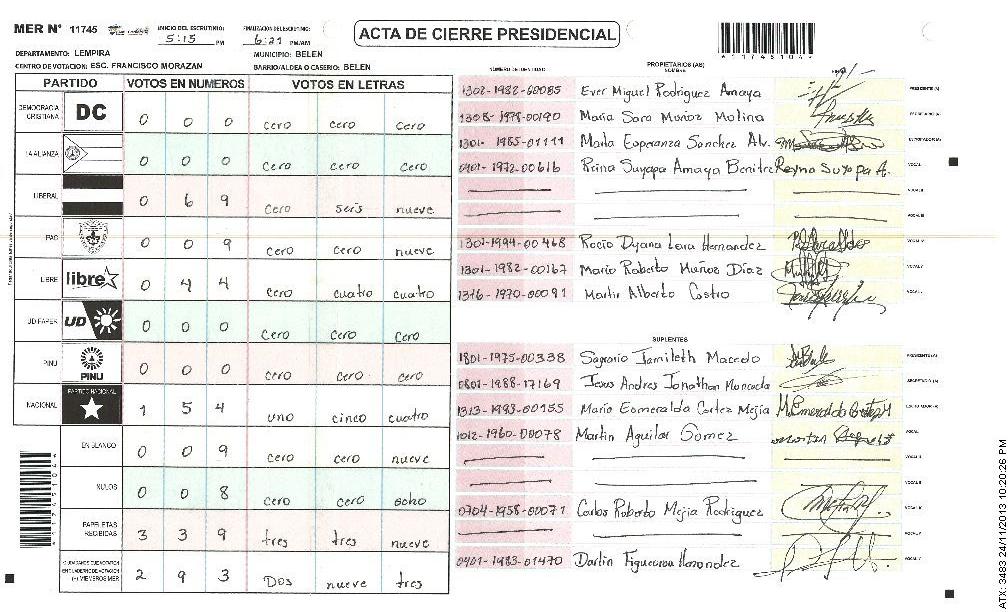 MER Nº 11745 INICIO DEL ESCRUTINIO: 5:15 PM FINALIZACION DEL ESCRUTINIO: 6:21 PM/AM
ACTA DE CIERRE PRESIDENCIAL
DEPARTAMENTO: LEMPIRA MUNICIPIO: BELEN
CENTRO DE VOTACION: ESC. FRANCISCO MORAZAN BARRIO/ALDEA O CASERIO: BELEN
PARTIDO VOTOS EN NUMEROS VOTOS EN LETRAS
DEMOCRACIA CRISTIANA DC 0 0 0 cero cero cero
LA ALIANZA 0 0 0 cero cero cero
LIBERAL 0 6 9 cero seis nueve
PAC 0 0 9 cero cero nueve
LIBRE libre 0 4 4 cero cuatro cuatro
UD FAPER UD 0 0 0 cero cero cero
PINU PINU 0 0 0 cero cero cero
NACIONAL PARTIDO NACIONAL 1 5 4 uno cinco cuatro
EN BLANCO 0 0 9 cero cero nueve
NULOS 0 0 8 cero cero ocho
PAPELETAS RECIBIDAS 3 3 9 tres tres nueve
2 9 3 Dos nueve tres
NUMERO DE IDENTIDAD PROPIETARIOS (AS) NOMBRE FIRMA
1302-1982-00085 Ever Miguel Rodriguez Amaya PRESIDENTE (A)
1308-1979-00190 Maria Sara Muñoz Molina SECRETARIO (A)
1301-1985-01111 Marta Esperanza Sanchez Alv. ESCRUTADOR (A)
0401-1972-00616 Reina Suyapa Amaya Benitez Reyna Suyapa A. VOCAL I
VOCAL II
VOCAL III
1301-1994-00468 Rocio Dyana Lara Hernandez VOCAL IV
1301-1982-00167 Mario Roberto Muñoz Diaz VOCAL V
1316-1970-00091 Martir Alberto Castro
SUPLENTES
1801-1975-00338 Sagrario Jamileth Macedo PRESIDENTE (A)
0801-1988-17169 Jesus Andres Jonathan Moncada SECRETARIO (A)
1313-1983-00155 Maria Esmeralda Cortez Mejia ESCRUTADOR (A)
1012-1960-00078 Martin Aguilar Gomez VOCAL I
VOCAL II
0704-1958-00071 Carlos Roberto Mejia Rodriguez
0401-1983-01470 Darlin Figueroa Hernandez
ATX: 3483 24/11/2013 10:20:26 PM